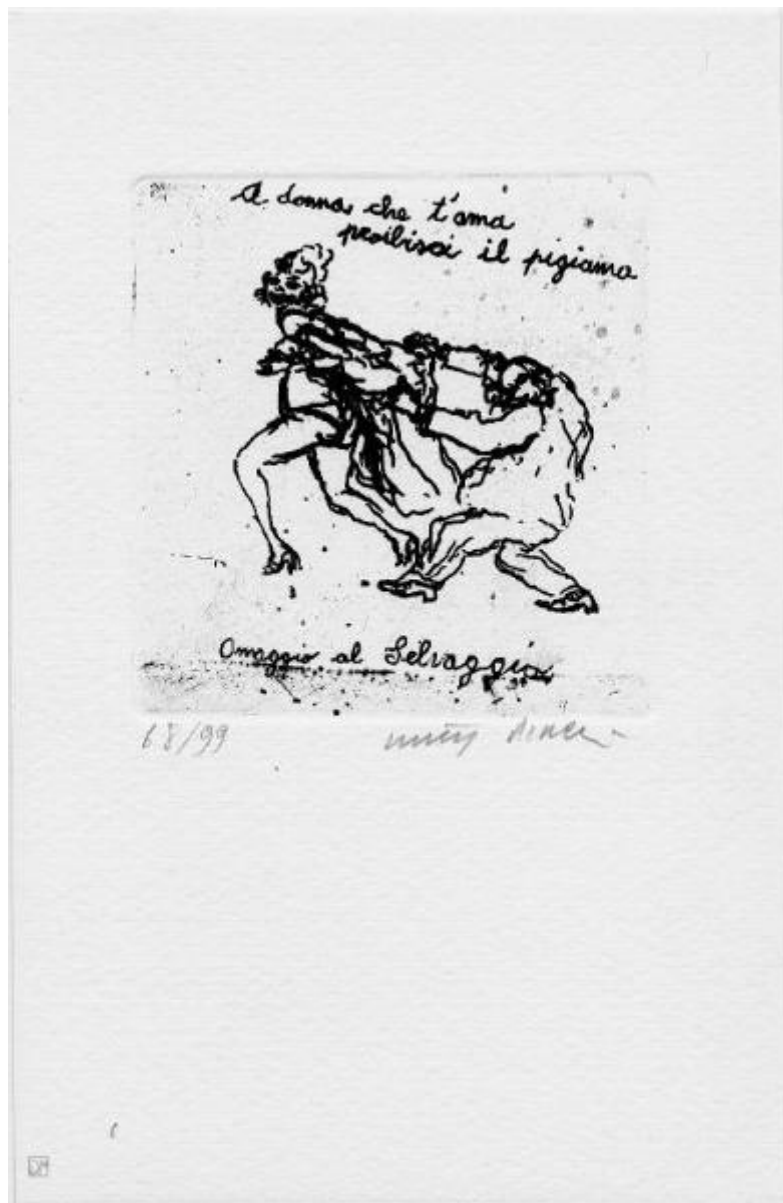 A donna che t'ama
proibisci il pigiama
Omaggio al Selvaggio
68/99